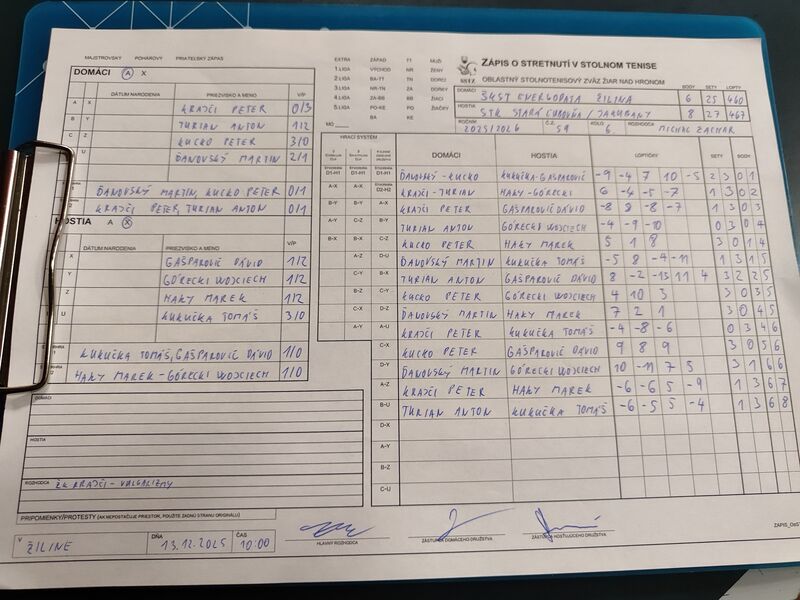 MAJSTROVSKÝ POHÁROVÝ PRIATEĽSKÝ ZÁPAS
DOMÁCI A X
DÁTUM NARODENIA PRIEZVISKO A MENO V/P
A X KRAJČÍ PETER 0/3
B Y TURIAN ANTON 1/2
C Z KUCKO PETER 3/0
U ĎANOVSKÝ MARTIN 2/1
1 ĎANOVSKÝ MARTIN, KUCKO PETER 0/1
2 KRAJČÍ PETER, TURIAN ANTON 0/1
HOSTIA A X
DÁTUM NARODENIA PRIEZVISKO A MENO V/P
X GAŠPAROVIČ DÁVID 1/2
Y GÓRECKI WOJCIECH 1/2
Z HAKY MAREK 1/2
U KUKUČKA TOMÁŠ 3/0
KUKUČKA TOMÁŠ, GAŠPAROVIČ DÁVID 1/0
HAKY MAREK - GÓRECKI WOJCIECH 1/0
DOMÁCI
HOSTIA
ROZHODCA ŽK KRAJČÍ - VULGARIZMY
PRIPOMIENKY/PROTESTY (AK NEPOSTAČUJE PRIESTOR, POUŽITE ZADNÚ STRANU ORIGINÁLU)
V ŽILINE DŇA 13.12.2025 ČAS 10:00
EXTRA ZÁPAD TT MUŽI
1.LIGA VÝCHOD NR ŽENY
2.LIGA BA-TT TN DOREJ
3.LIGA NR-TN ZA DOREZ
4.LIGA ZA-BB BB ŽIACI
5.LIGA PO-KE PO ŽIAČKY
BA KE
MO
SSTZ
ZÁPIS O STRETNUTÍ V STOLNOM TENISE
OBLASTNÝ STOLNOTENISOVÝ ZVÄZ ŽIAR NAD HRONOM
BODY SETY LOPTY
DOMÁCI ŠKST ENERGODATA ŽILINA 6 25 460
HOSTIA STK STARÁ ĽUBOVŇA/JAKUBANY 8 27 467
ROČNÍK 2025/2026 Č.Z. 59 KOLO 6 ROZHODCA MICHAL ZACHAR
HRACÍ SYSTÉM
DOMÁCI HOSTIA LOPTIČKY SETY BODY
D1-H1 D1-H1 D1-H1 ĎANOVSKÝ - KUCKO KUKUČKA - GAŠPAROVIČ -9 -4 7 10 -5 2 3 0 1
A-X A-X D2-H2 KRAJČÍ - TURIAN HAKY - GÓRECKI 6 -4 -5 -7 1 3 0 2
B-Y B-Y A-X KRAJČÍ PETER GAŠPAROVIČ DÁVID -8 8 -8 -7 1 3 0 3
A-Y C-Z B-Y TURIAN ANTON GÓRECKI WOJCIECH -4 -9 -10 0 3 0 4
B-X B-X C-Z KUCKO PETER HAKY MAREK 5 1 8 3 0 1 4
A-Z D-U ĎANOVSKÝ MARTIN KUKUČKA TOMÁŠ -5 8 -4 -11 1 3 1 5
C-Y B-X TURIAN ANTON GAŠPAROVIČ DÁVID 8 -2 -13 11 4 3 2 2 5
B-Z C-Y KUCKO PETER GÓRECKI WOJCIECH 4 10 3 3 0 3 5
C-X D-Z ĎANOVSKÝ MARTIN HAKY MAREK 7 2 1 3 0 4 5
A-Y A-U KRAJČÍ PETER KUKUČKA TOMÁŠ -4 -8 -6 0 3 4 6
C-X KUCKO PETER GAŠPAROVIČ DÁVID 9 8 9 3 0 5 6
D-Y ĎANOVSKÝ MARTIN GÓRECKI WOJCIECH 10 -11 7 5 3 1 6 6
A-Z KRAJČÍ PETER HAKY MAREK -6 -6 5 -9 1 3 6 7
B-U TURIAN ANTON KUKUČKA TOMÁŠ -6 -5 5 -4 1 3 6 8
D-X
A-Y
B-Z
C-U
HLAVNÝ ROZHODCA
ZÁSTUPCA DOMÁCEHO DRUŽSTVA
ZÁSTUPCA HOSŤUJÚCEHO DRUŽSTVA